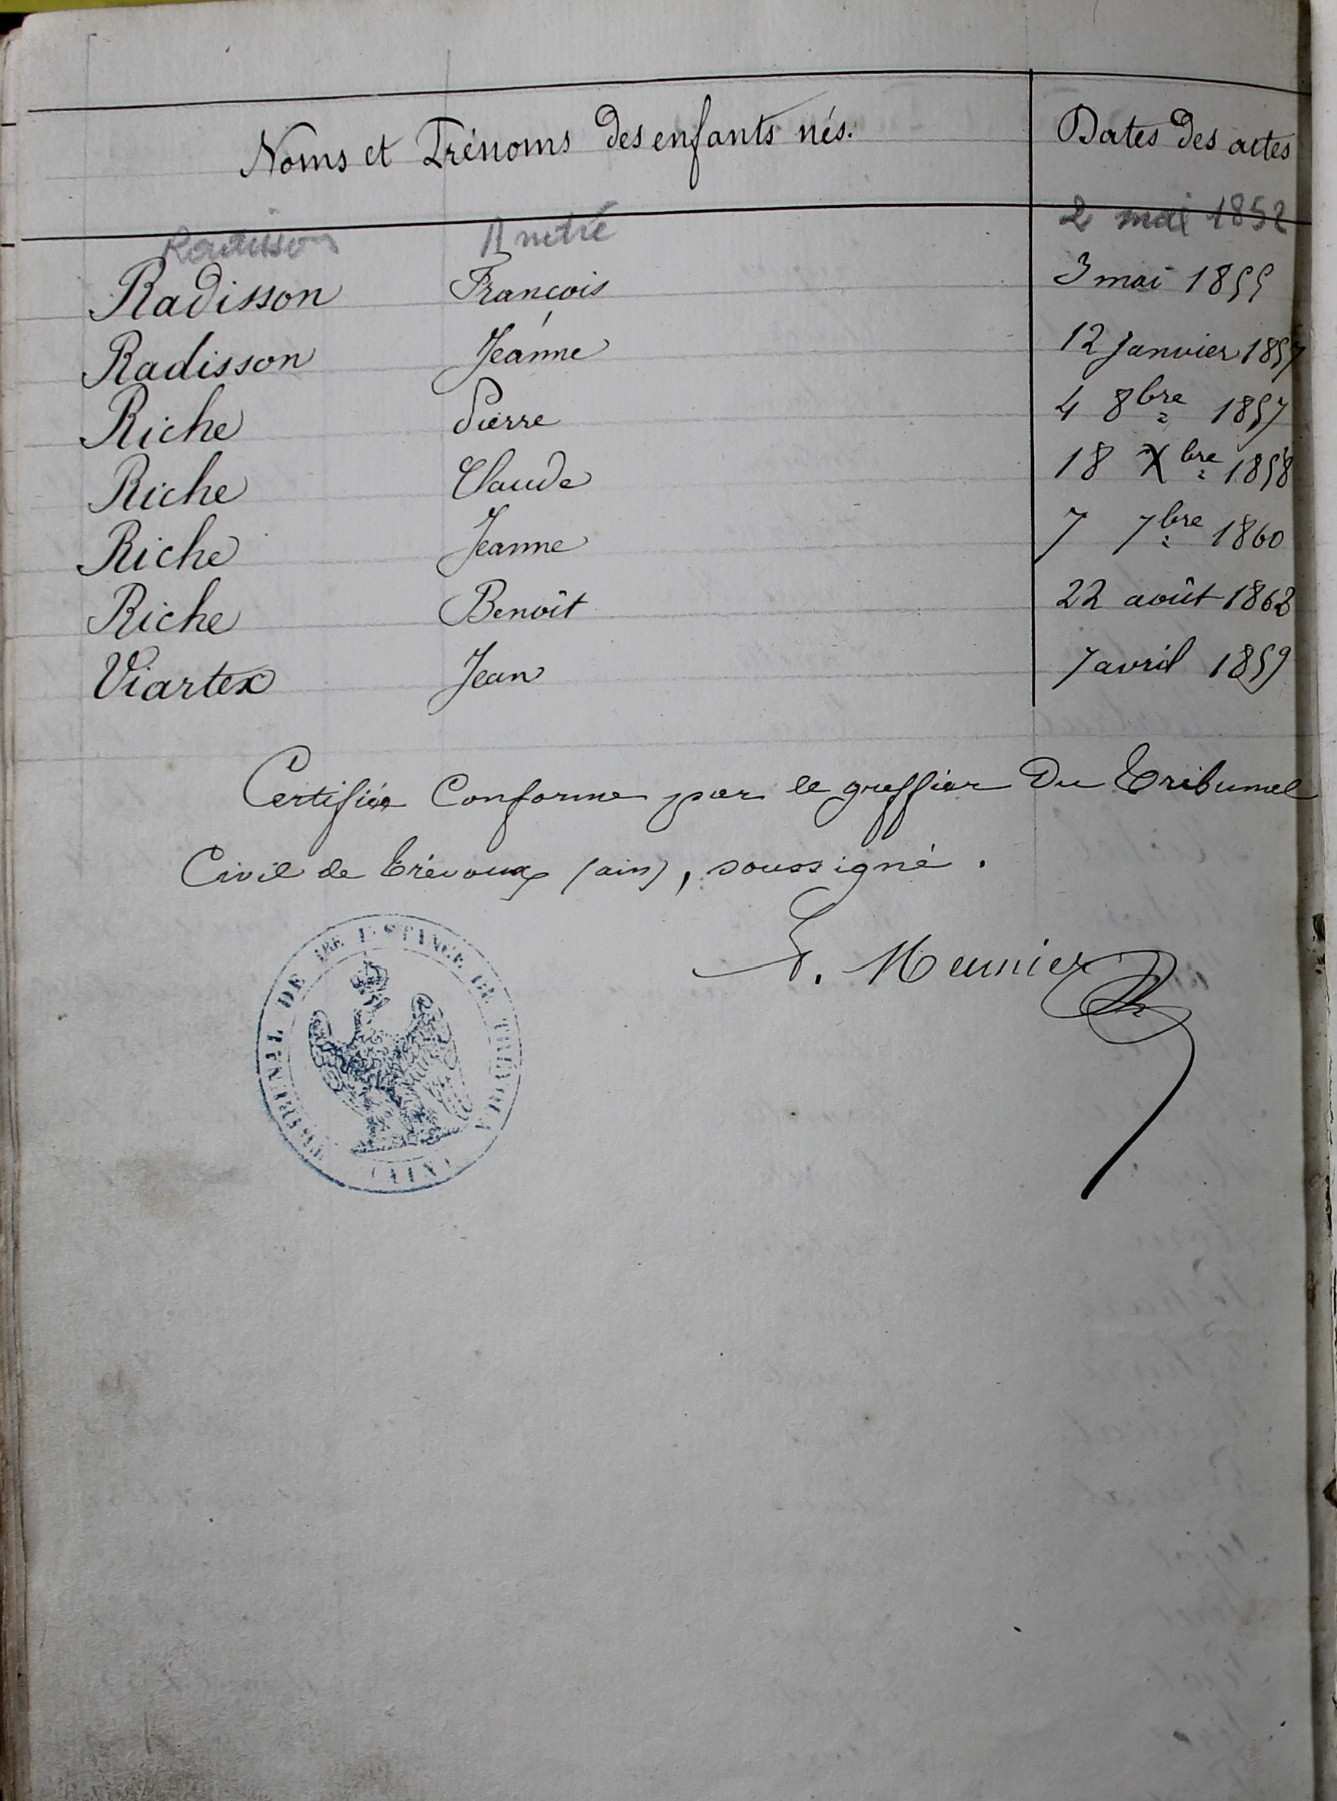 Noms et Prénoms des enfants nés. Dates des actes
Radisson André 2 mai 1852
Radisson François 3 mai 1855
Radisson Jeanne 12 Janvier 1857
Riche Pierre 4 8bre 1857
Riche Claude 18 Xbre 1858
Riche Jeanne 7 7bre 1860
Riche Benoît 22 août 1862
Viartex Jean 7 avril 1859
Certifiée Conforme par le greffier Du Tribunal
Civil de Trévoux (ain), soussigné.
Meunier
TRIBUNAL DE 1RE INSTANCE DE TRÉVOUX
(AIN)